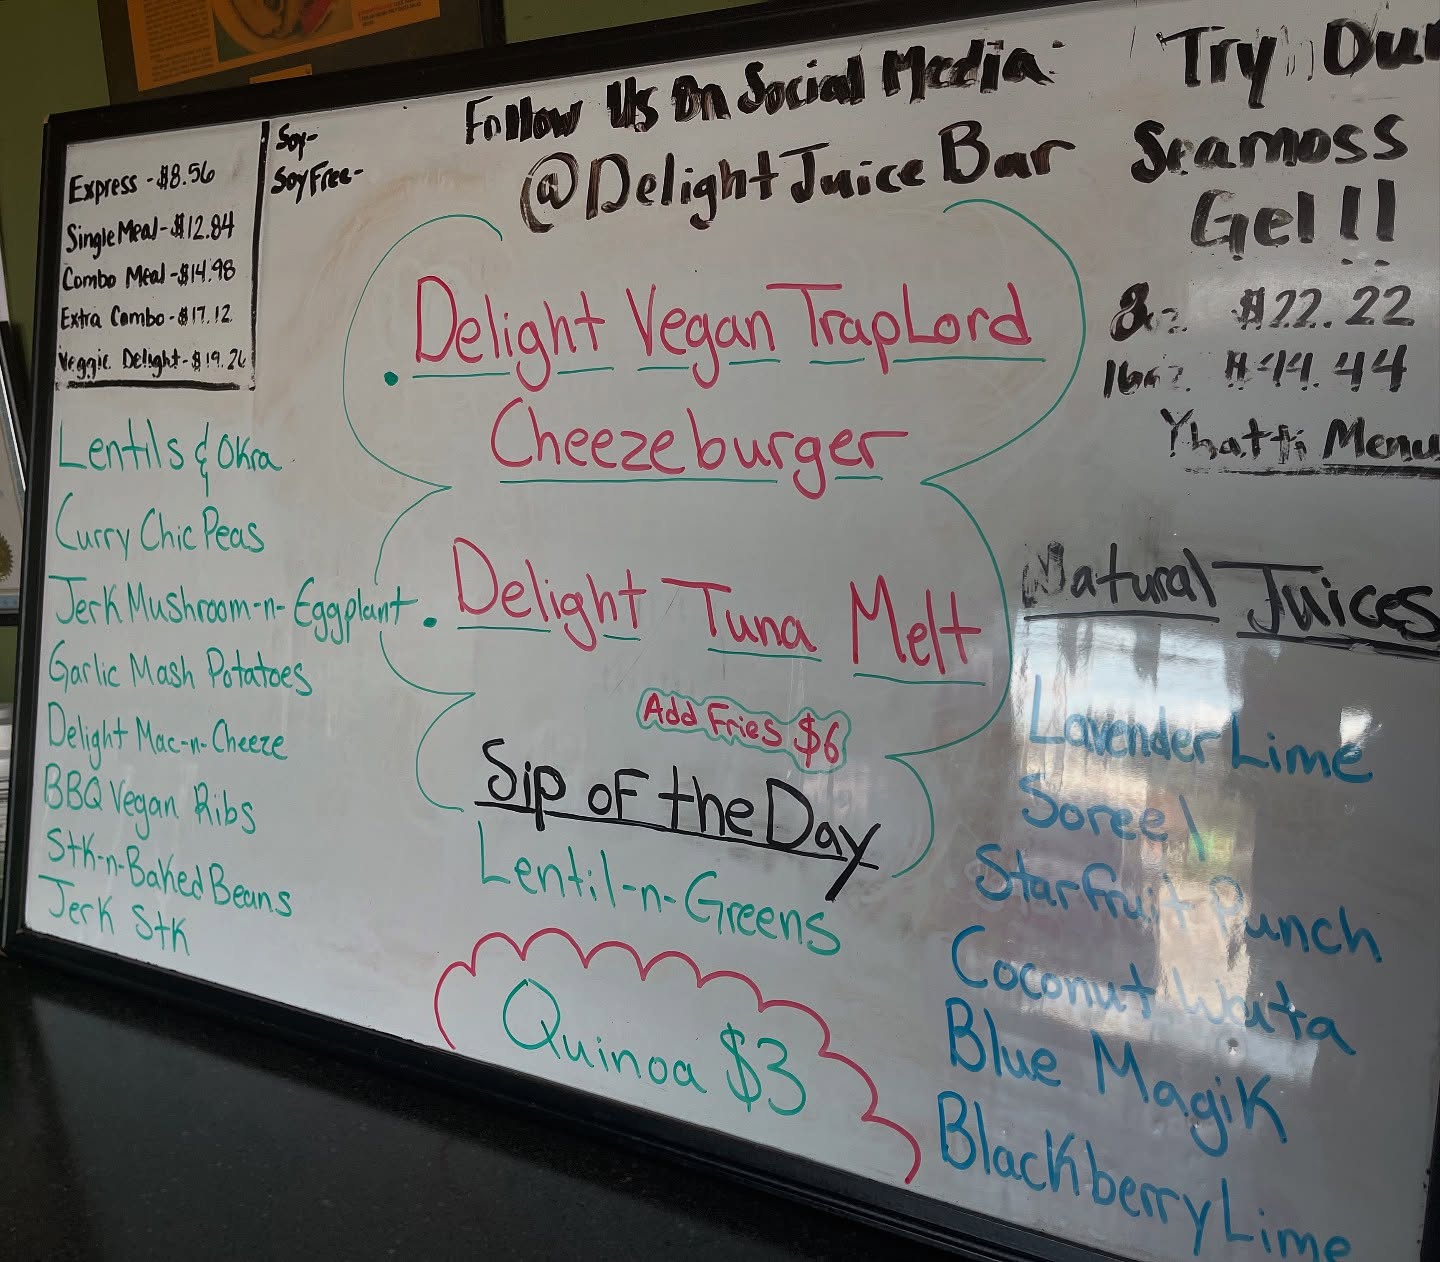 Express - $8.56
Single Meal - $12.84
Combo Meal - $14.98
Extra Combo - $17.12
Veggie Delight - $19.26
Soy-
Soy Free-
Follow Us On Social Media
@DelightJuiceBar
Try Our
Seamoss
Gel!!
8oz $22.22
16oz $44.44
Menu
Lentils & Okra
Curry Chic Peas
Jerk Mushroom-n-Eggplant
Garlic Mash Potatoes
Delight Mac-n-Cheeze
BBQ Vegan Ribs
Stk-n-Baked Beans
Jerk Stk
. Delight Vegan TrapLord
Cheezeburger
. Delight Tuna Melt
Add Fries $6
Sip of the Day
Lentil-n-Greens
Quinoa $3
Natural Juices
Lavender Lime
Soreel
Starfruit Punch
Coconut Wata
Blue Magik
Blackberry Lime